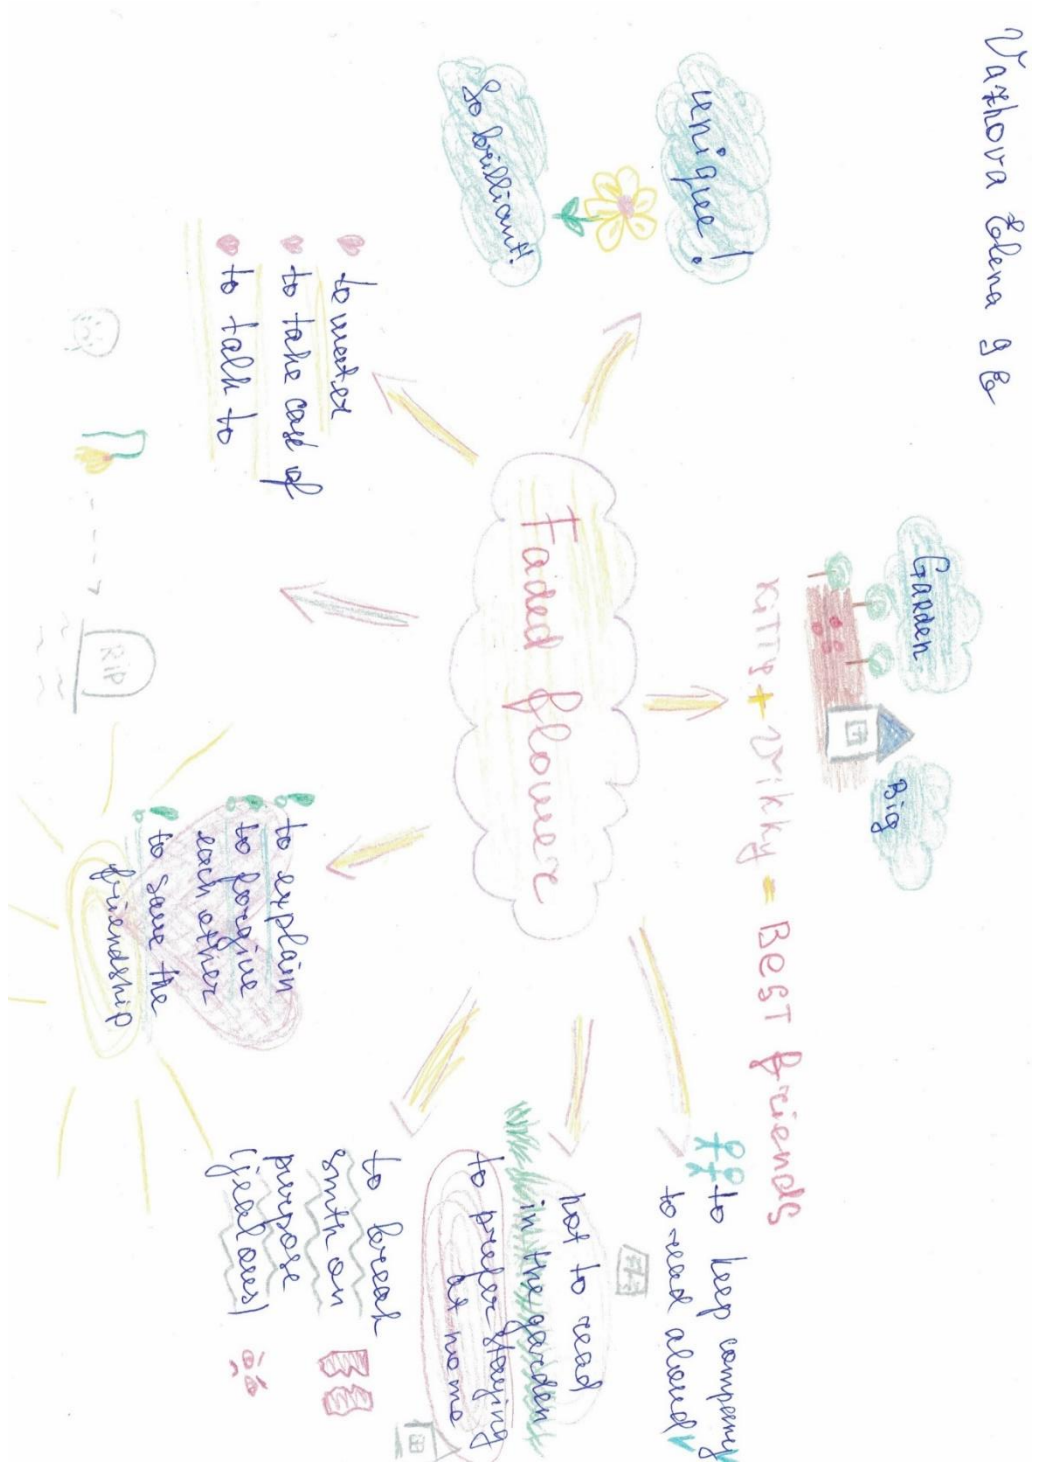 Vazhova Elena 9
unique!
So brilliant!
Garden
Big
KITTY + Vikky = BEST friends
Faded flower
to water
to take care of
to talk to
RIP
to explain
to forgive
each other
to save the
friendship
to keep company
to read aloud
not to read
in the garden
to prefer staying
at home
to break
smth on
purpose
(jealous)